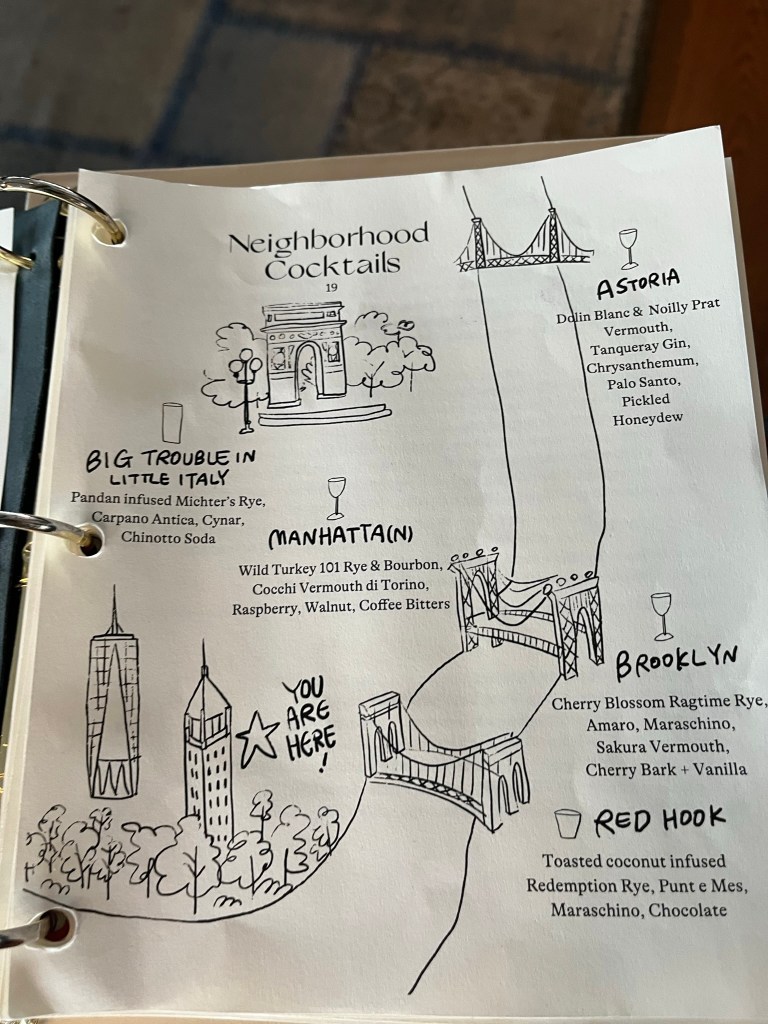 Neighborhood
Cocktails
19
ASTORIA
Dolin Blanc & Noilly Prat
Vermouth,
Tanqueray Gin,
Chrysanthemum,
Palo Santo,
Pickled
Honeydew
BIG TROUBLE IN
LITTLE ITALY
Pandan infused Michter's Rye,
Carpano Antica, Cynar,
Chinotto Soda
MANHATTA(N)
Wild Turkey 101 Rye & Bourbon,
Cocchi Vermouth di Torino,
Raspberry, Walnut, Coffee Bitters
BROOKLYN
Cherry Blossom Ragtime Rye,
Amaro, Maraschino,
Sakura Vermouth,
Cherry Bark + Vanilla
YOU
ARE
HERE
!
RED HOOK
Toasted coconut infused
Redemption Rye, Punt e Mes,
Maraschino, Chocolate